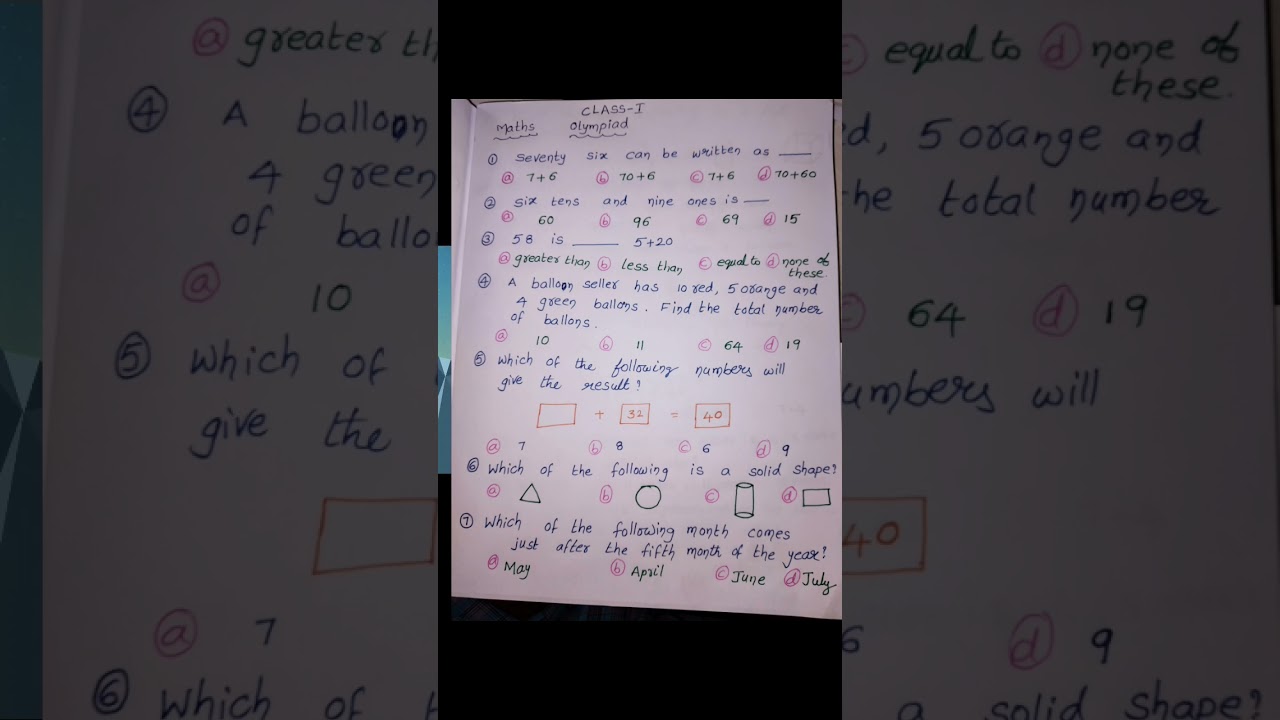 CLASS-I
Maths Olympiad
① Seventy six can be written as ___
ⓐ 7+6 ⓑ 70+6 ⓒ 7+6 ⓓ 70+60
② Six tens and nine ones is ___
ⓐ 60 ⓑ 96 ⓒ 69 ⓓ 15
③ 58 is ___ 5+20
ⓐ greater than ⓑ less than ⓒ equal to ⓓ none of
these.
④ A balloon seller has 10 red, 5 orange and
4 green ballons. Find the total number
of ballons.
ⓐ 10 ⓑ 11 ⓒ 64 ⓓ 19
⑤ Which of the following numbers will
give the result?
+ 32 = 40
ⓐ 7 ⓑ 8 ⓒ 6 ⓓ 9
⑥ Which of the following is a solid shape?
ⓐ ⓑ ⓒ ⓓ
⑦ Which of the following month comes
just after the fifth month of the year?
ⓐ May ⓑ April ⓒ June ⓓ July